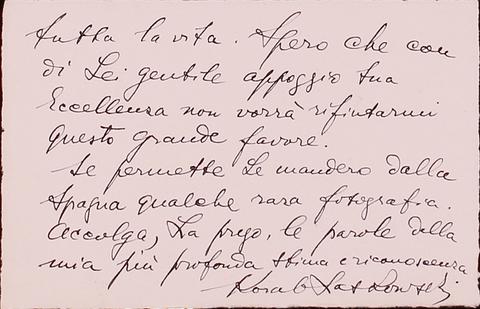 tutta la vita. Spero che con
di Lei gentile appoggio Sua
Eccellenza non vorrà rifiutarmi
questo grande favore.
Se permette Le manderò dalla
Spagna qualche rara fotografia.
Accolga, La prego, le parole della
mia più profonda stima e riconoscenza
Korab Laskowski